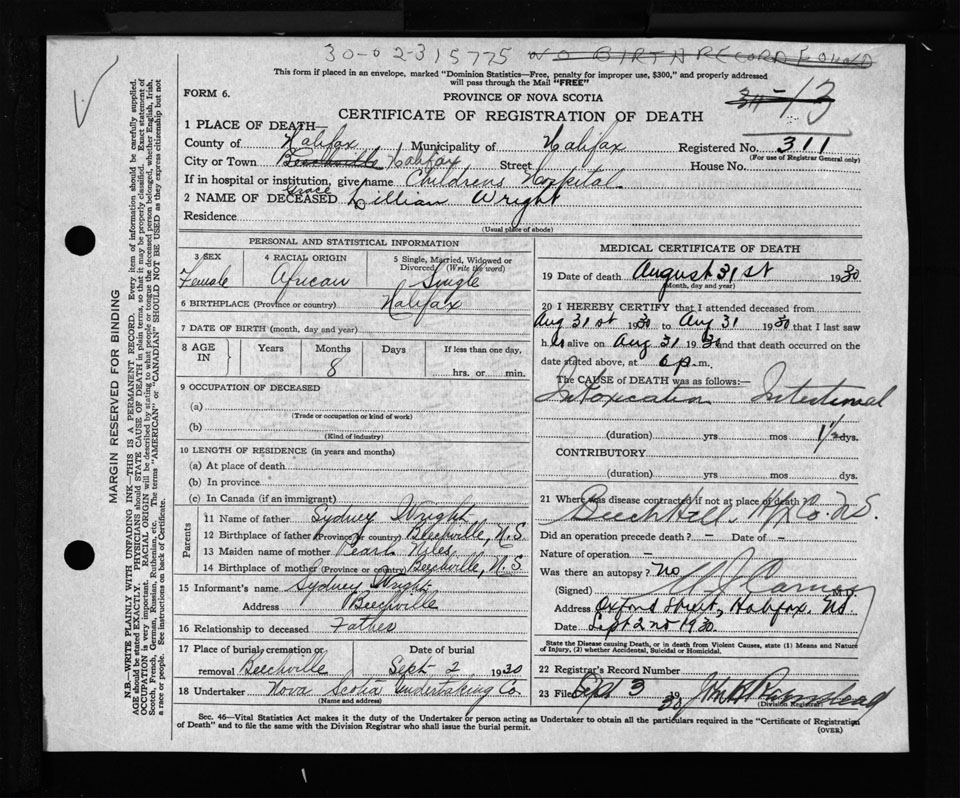 30-02-315775 NO BIRTH RECORD FOUND
This form if placed in an envelope, marked "Dominion Statistics—Free, penalty for improper use, $300," and properly addressed
will pass through the Mail "FREE"
FORM 6.
PROVINCE OF NOVA SCOTIA
-13
CERTIFICATE OF REGISTRATION OF DEATH
1 PLACE OF DEATH—
County of Halifax Municipality of Halifax Registered No. 311
(For use of Registrar General only)
City or Town Beechville Halifax Street House No.
If in hospital or institution, give name Childrens Hospital
2 NAME OF DECEASED Grace Lillian Wright
Residence
(Usual place of abode)
PERSONAL AND STATISTICAL INFORMATION
3 SEX Female
4 RACIAL ORIGIN African
5 Single, Married, Widowed or Divorced (Write the word) Single
6 BIRTHPLACE (Province or country) Halifax
7 DATE OF BIRTH (month, day and year)
8 AGE IN Years Months 8 Days If less than one day, hrs. or min.
9 OCCUPATION OF DECEASED
(a)
(Trade or occupation or kind of work)
(b)
(Kind of industry)
10 LENGTH OF RESIDENCE (in years and months)
(a) At place of death
(b) In province
(c) In Canada (if an immigrant)
Parents
11 Name of father Sydney Wright
12 Birthplace of father (Province or country) Beechville, N.S.
13 Maiden name of mother Pearl
14 Birthplace of mother (Province or country) Beechville, N.S.
15 Informant's name Sydney Wright
Address Beechville
16 Relationship to deceased Father
17 Place of burial, cremation or removal Beechville Date of burial Sept 2 1930
18 Undertaker Nova Scotia Undertaking Co.
(Name and address)
MEDICAL CERTIFICATE OF DEATH
19 Date of death August 31st 1930
(Month, day and year)
20 I HEREBY CERTIFY that I attended deceased from
Aug 31st 1930 to Aug 31 1930 that I last saw
her alive on Aug 31 1930 and that death occurred on the
date stated above, at 6 p.m.
The CAUSE of DEATH was as follows:—
Intoxication Intestinal
(duration) yrs mos 1½ dys.
CONTRIBUTORY
(duration) yrs mos dys.
21 Where was disease contracted if not at place of death?
Beech Hill, Hfx Co. N.S.
Did an operation precede death? — Date of —
Nature of operation —
Was there an autopsy? No
(Signed) M.D.
Address Oxford Street, Halifax. NS
Date Sept 2nd 1930.
State the Disease causing Death, or in death from Violent Causes, state (1) Means and Nature of Injury, (2) whether Accidental, Suicidal or Homicidal.
22 Registrar's Record Number
23 Filed Sept 3 1930
(Division Registrar)
Sec. 46—Vital Statistics Act makes it the duty of the Undertaker or person acting as Undertaker to obtain all the particulars required in the "Certificate of Registration
of Death" and to file the same with the Division Registrar who shall issue the burial permit.
(OVER)
MARGIN RESERVED FOR BINDING
N.B.—WRITE PLAINLY WITH UNFADING INK—THIS IS A PERMANENT RECORD. Every item of information should be carefully supplied.
AGE should be stated EXACTLY. PHYSICIANS should STATE CAUSE OF DEATH in plain terms, so that it may be properly classified. Exact statement of
OCCUPATION is very important. RACIAL ORIGIN will be described by stating to what people or tongue the deceased person belonged, whether English, Irish,
Scotch, French, German, Russian, Ruthenian, etc. The terms "AMERICAN" or "CANADIAN" SHOULD NOT BE USED as they express citizenship but not
a race or people. See instructions on back of Certificate.